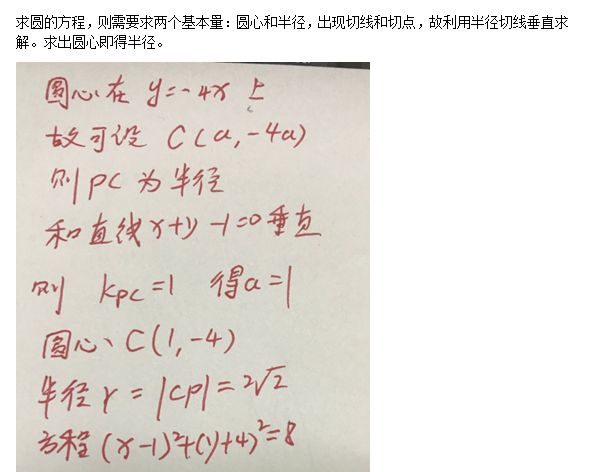 求圆的方程，则需要求两个基本量：圆心和半径，出现切线和切点，故利用半径切线垂直求
解。求出圆心即得半径。
圆心在 y=-4x 上
故可设 C(a,-4a)
则 PC 为半径
和直线 x+y-1=0 垂直
则 kpc=1 得a=1
圆心 C(1,-4)
半径 r=|CP|=2√2
方程 (x-1)²+(y+4)²=8